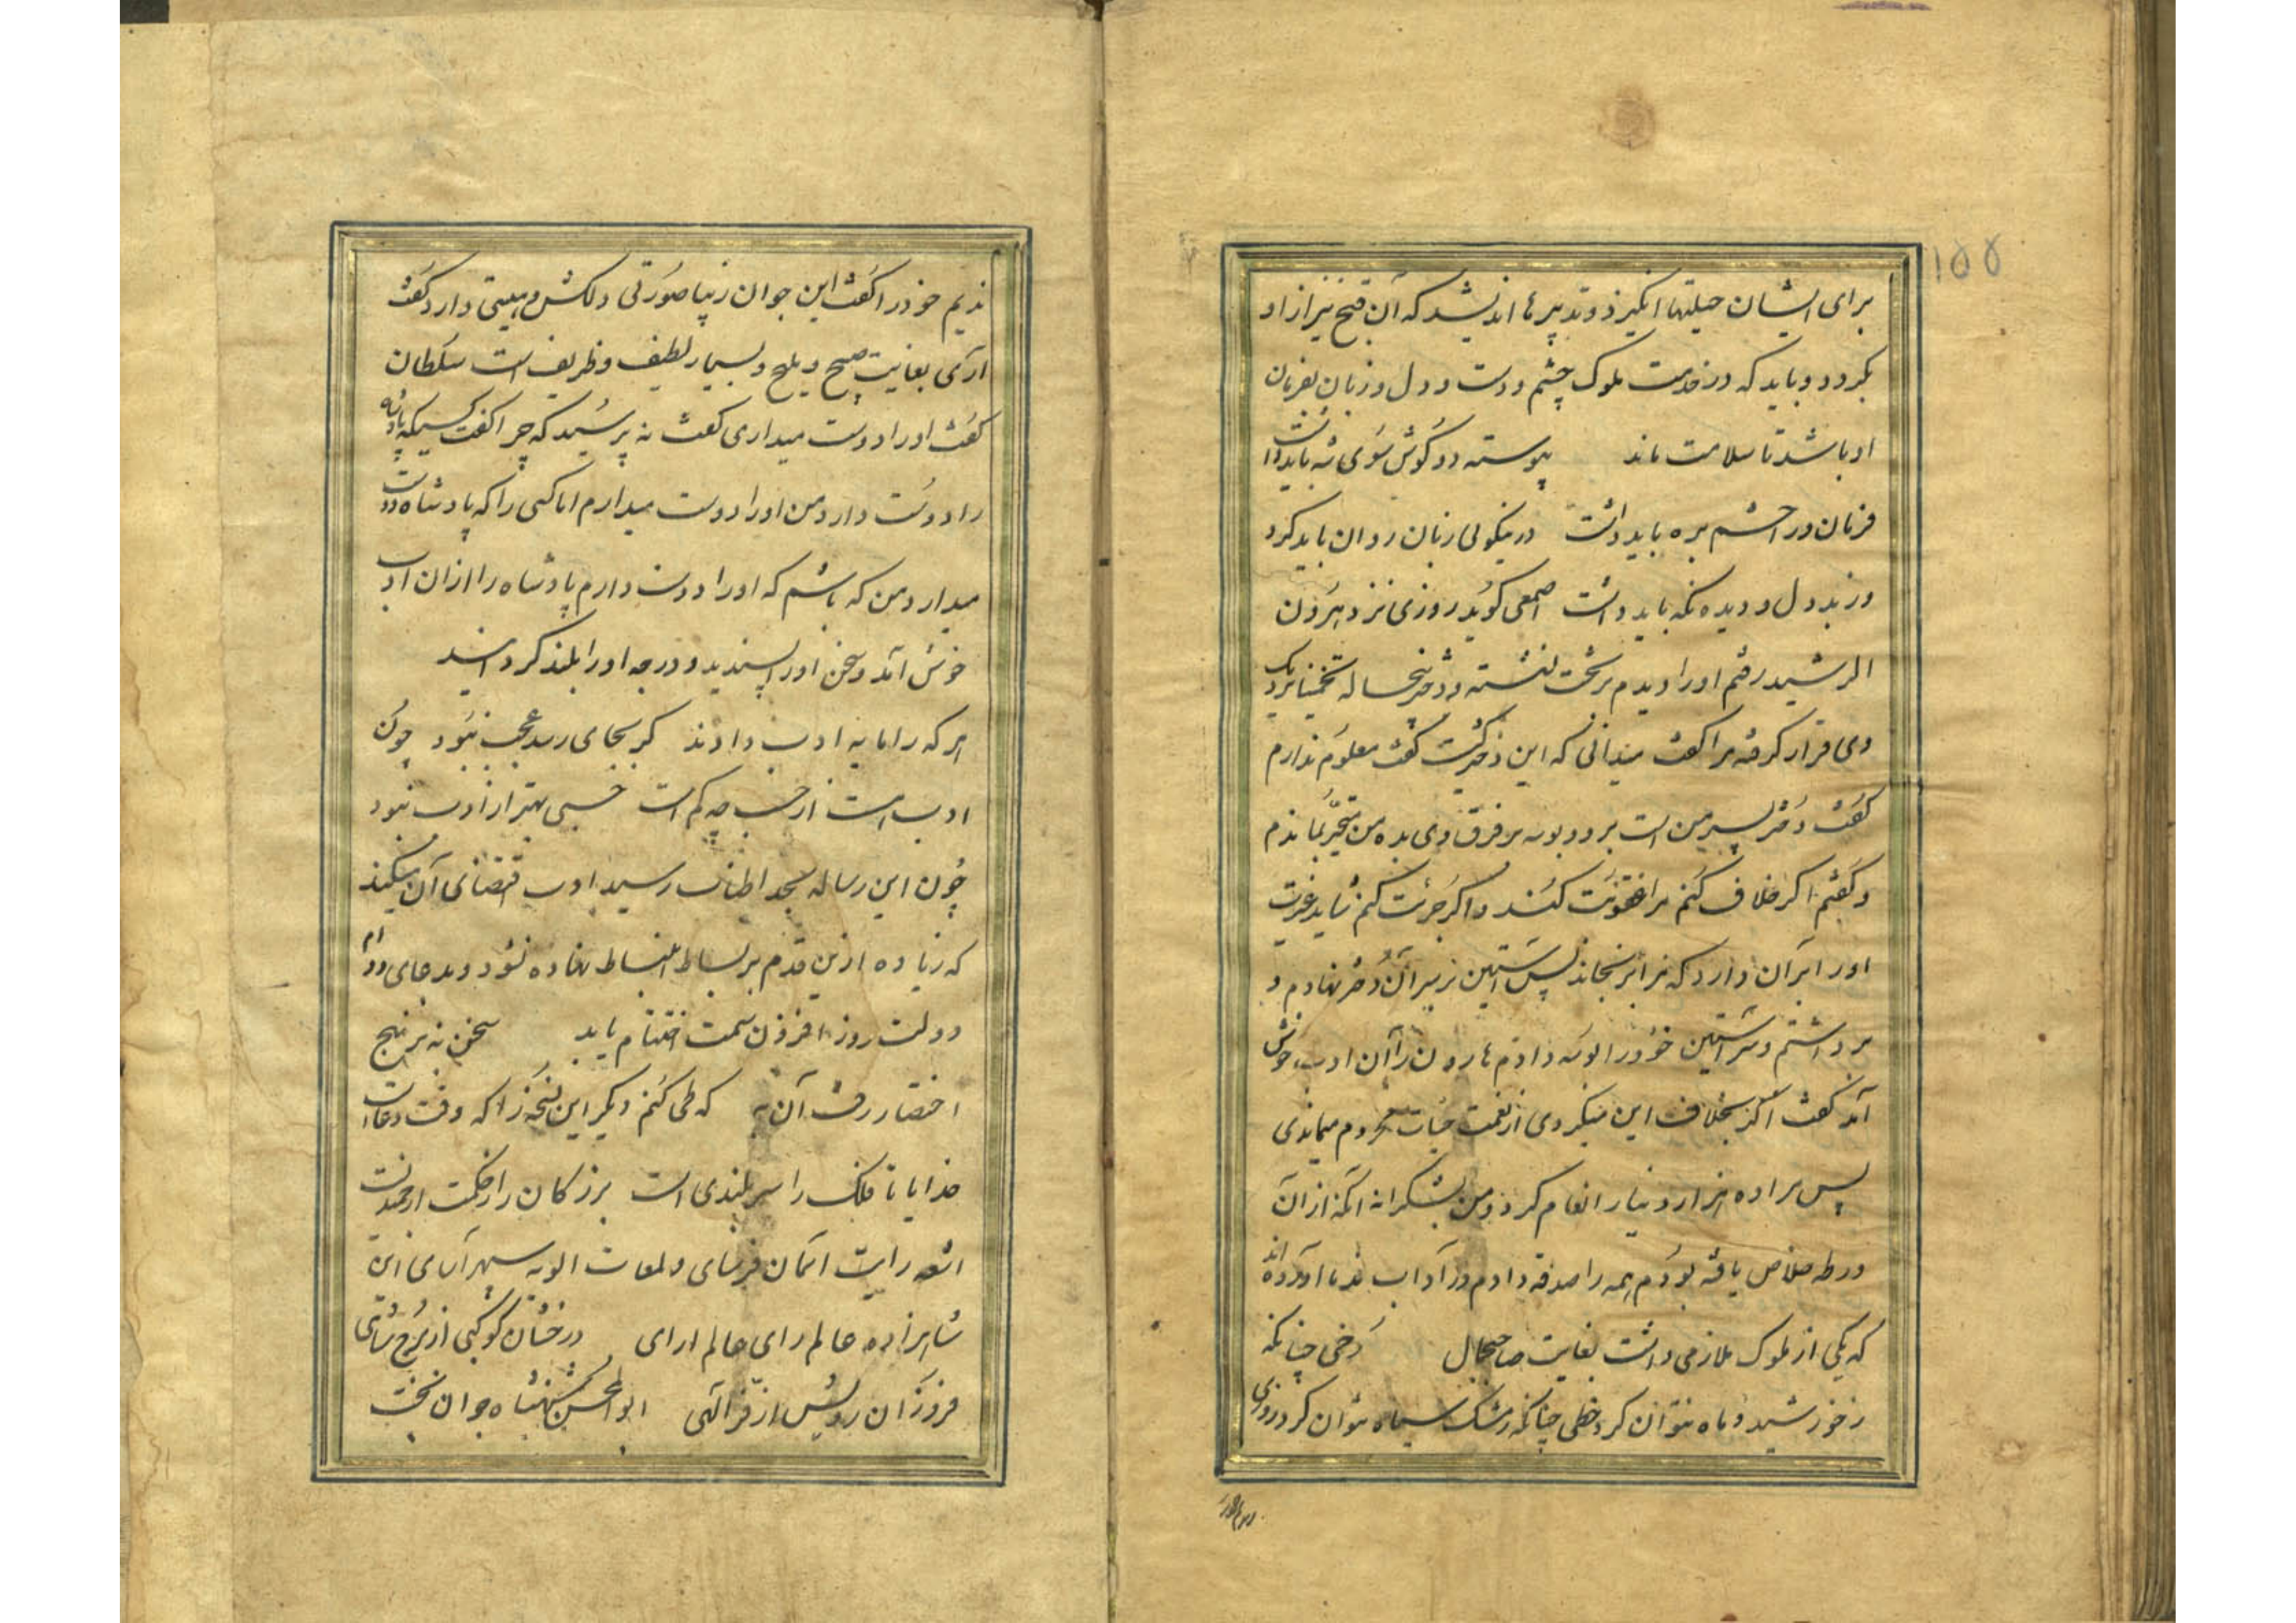 ۱۵۵
برای ایشان حیلتها انگیزد و تدبیرها اندیشد که آن قبح نیز از او
بگردد و باید که در خدمت ملوک چشم و دست و دل و زبان بفرمان
او باشد تا سلامت ماند پیوسته دو گوش سوی شه باید داشت
فرمان ورا چشم بره باید داشت در نیکوئی زبان روان باید کرد
وز بد دل و دیده نگه باید داشت اصمعی گوید روزی نزد هرون
الرشید رفتم او را دیدم بر تخت نشسته و دختر پنجساله تخمینا نزدیک
وی قرار گرفته مرا گفت میدانی که این دختر کیست گفتم معلوم ندارم
گفت دختر پسر من است برو و بوسه بر فرق وی بده من متحیر بماندم
و گفتم اگر خلاف کنم مرا عقوبت کند و اگر جرئت کنم شاید غیرت
او را بر آن دارد که مرا برنجاند پس آستین بر سر آن دختر نهادم و
برداشتم و سر آستین خود را بوسه دادم هارون را آن ادب خوش
آمد گفت اگر بخلاف این میکردی از نعمت حیات محروم میماندی
پس مرا ده هزار دینار انعام کرد و من بشکرانه آنکه از آن
ورطه خلاص یافته بودم همه را صدقه دادم در آداب ندما آورده اند
که یکی از ملوک ملازمی داشت بغایت صاحبجمال رخی چنانکه
ز خورشید و ماه نتوان کرد خطی چنانکه ز مشک سیاه نتوان کرد روزی
ندیم خود را گفت این جوان زیبا صورتی دلکش و هیئتی دارد گفت
آری بغایت صبیح و ملیح و بسیار لطیف و ظریف است سلطان
گفت او را دوست میداری گفت نه پرسید که چرا گفت کسیکه پادشاه
را دوست دارد من او را دوست میدارم اما کسی را که پادشاه دوست
میدارد من که باشم که او را دوست دارم پادشاه را از آن ادب
خوش آمد و سخن او را پسندید و درجه او را بلند گردانید
هر که را مایه ادب دادند گر بجای رسد عجب نبود چون
ادب هست از حسب چه کم است حسبی بهتر از ادب نبود
چون این رساله بحد اطناب رسید ادب اقتضای آن میکند
که زیاده ازین قدم بر بساط انبساط نهاده نشود و بدعای دوام
دولت روز افزون سمت اختتام یابد سخن به بر نهج
اختصار رفت آن به که طی کنم دیگر این نسخه را که وقت دعاست
خدایا تا فلک را سربلندی است بزرگان را ز حکمت ارجمندیست
اشعه رایت آسمان فرسای و لمعات الویه سپهر آسای این
شاهزاده عالم رای عالم ارای درخشان کوکبی از برج شاهی
فروزان رویش از فر الهی ابوالمحسن شهنشاه جوان بخت